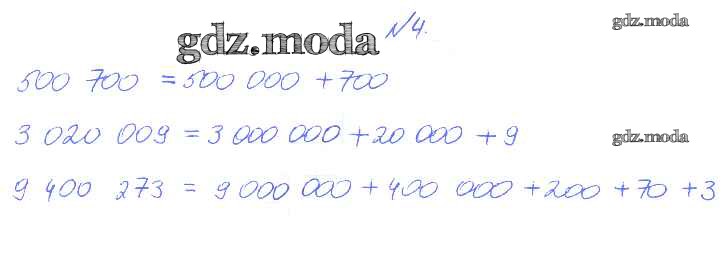 gdz.moda №4. gdz.moda
500 700 = 500 000 + 700
3 020 009 = 3 000 000 + 20 000 + 9
gdz.moda
9 400 273 = 9 000 000 + 400 000 + 200 + 70 + 3